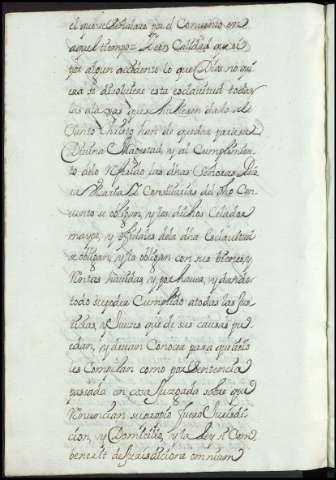 el que se señalare por el Convento en
aquel tiempo: Y con Calidad que si
por algun accidente lo que Dios no qui
era se disolviese esta esclavitud todas
las alaxas que huviesen dado a el
Santo Christo han de quedar para su
Divina Magestad, y al Cumplimien
to de lo referido las dhas Señoras Ria
y Maria Constituidas del dho Con
vento se obligan, y los dichos Celador
mayor, y ofiziales de la dha Esclavitud
se obligan, y la obligan con sus bienes, y
Rentas havidas, y por haver, y dando
todo su poder Cumplido a todas las Jus
ticias, y Juezes que de sus causas pu
edan, y devan Conocer para que a ello
les Compelan como por Sentencia
pasada en cosa Juzgada sobre que
Renuncian su propio fuero Jurisdic
cion, y Domicilio, y la ley si Com
benerit de Jurisdicione omnium